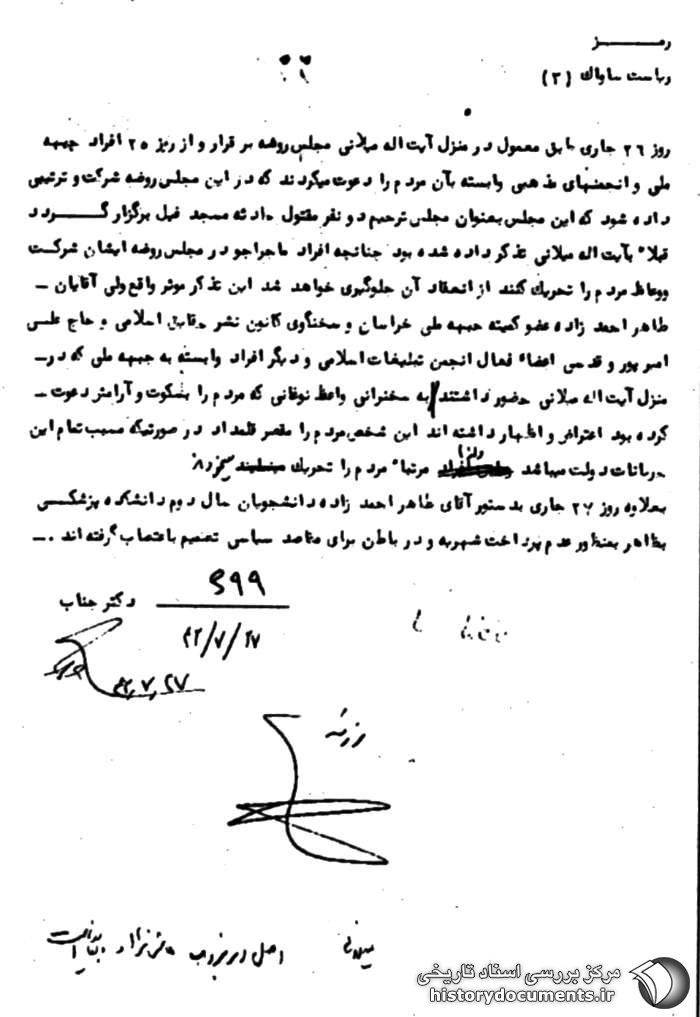 رمـــــز
ریاست ساواک (۳)
روز ۲۶ جاری طبق معمول در منزل آیت اله میلانی مجلس روضه برقرار و از روز ۲۵ افراد جبهه
ملی و انجمنهای مذهبی وابسته بآن مردم را دعوت میکردند که در این مجلس روضه شرکت و ترتیبی
داده شود که این مجلس بعنوان مجلس ترحیم دو نفر مقتول حادثه مسجد فیل برگزار گـــردد
قبلاً بآیت اله میلانی تذکر داده شده بود چنانچه افراد ماجراجو در مجلس روضه ایشان شرکت
ووعاظ مردم را تحریک کنند از انعقاد آن جلوگیری خواهد شد این تذکر موثر واقع ولی آقایان ـ
طاهر احمد زاده عضو کمیته جبهه ملی خراسان و سخنگوی کانون نشر حقایق اسلامی و حاج علی
امیر پور و قدسی اعضاء فعال انجمن تبلیغات اسلامی و دیگر افراد وابسته به جبهه ملی که در ـ
منزل آیت اله میلانی حضور داشتند به سخنرانی واعظ نوقانی که مردم را بسکوت و آرامش دعوت ـ
کرده بود اعتراض و اظهار داشته اند این شخص مردم را مقصر قلمداد در صورتیکه مسبب تمام این
جریانات دولت میباشد مرتباً مردم را تحریک
بعلاوه روز ۲۷ جاری بدستور آقای طاهر احمد زاده دانشجویان سال دوم دانشکده پزشکـی
بظاهر بمنظور عدم پرداخت شهریه و در باطن برای مقاصد سیاسی تصمیم باعتصاب گرفته اند .ـ
۶۹۹
دکتر جناب
۴۲/۷/۲۷
۴۲،۷،۲۷
اصل در پرونده
مرکز بررسی اسناد تاریخی
historydocuments.ir